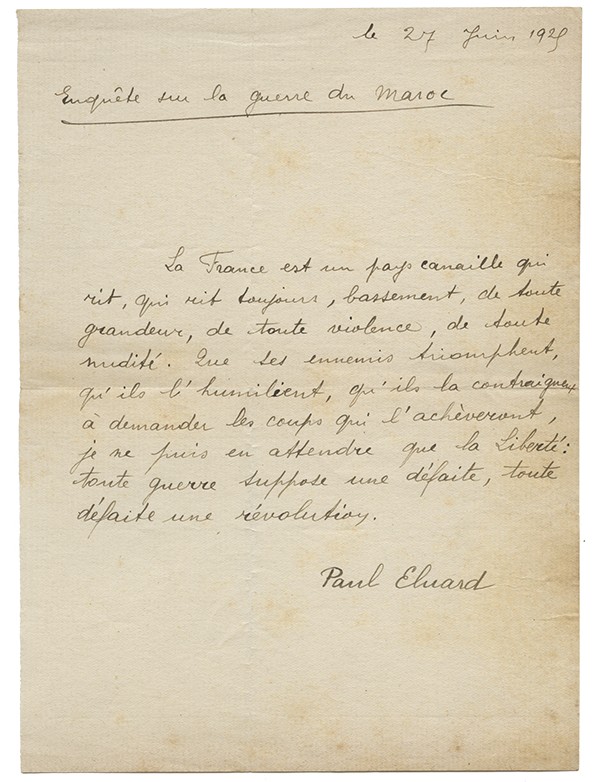 le 27 Juin 1925
Enquête sur la guerre du Maroc
La France est un pays canaille qui
rit, qui rit toujours, bassement, de toute
grandeur, de toute violence, de toute
nudité. Que ses ennemis triomphent,
qu'ils l'humilient, qu'ils la contraignent
à demander les coups qui l'achèveront,
je ne puis en attendre que la Liberté :
toute guerre suppose une défaite, toute
défaite une révolution.
Paul Eluard